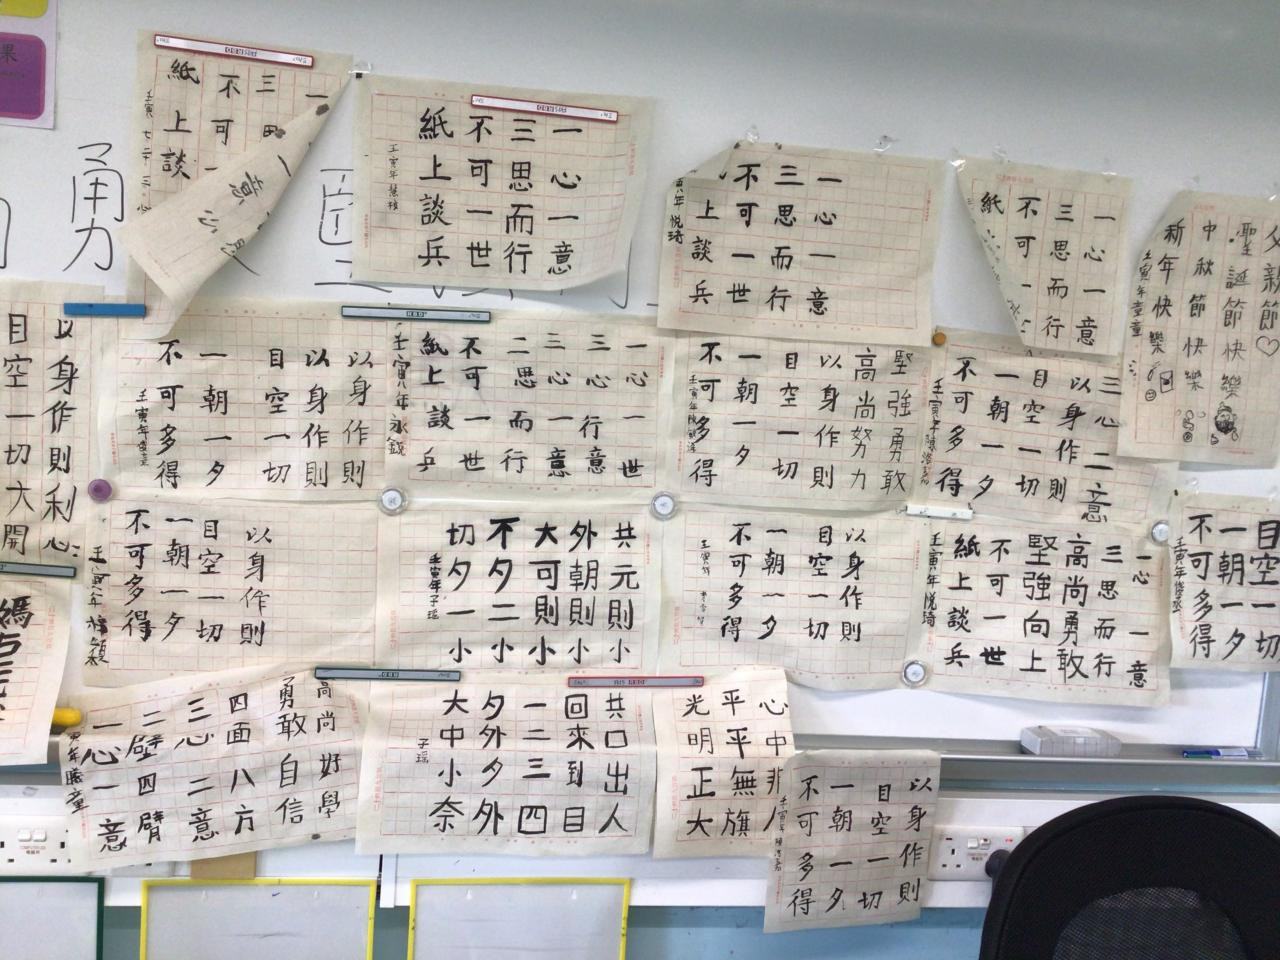 果
勇
一
三思
不可
紙上談
一心一意
三思而行
不可一世
紙上談兵
壬寅年慧積
一心一意
三思而行
不可一世
上談兵
年悅琦
一心一意
三思而行
不可一
紙
父親節♡
聖誕節快樂
中秋節快樂
新年快樂
壬寅年童童
以身作則利心
目空一切大開
以身作則
以身作則
目空一切
一朝一夕
不可多得
一心一世
三心行意
三心一意
二思而行
不可一世
紙上談乒
堅強勇敢
高尚努力
以身作則
目空一切
一朝一夕
不可多得
三心二意
以身作則
目空一切
一朝一夕
不可多得
以身作則
目空一切
一朝一夕
不可多得
共元則小
外朝則小
大可則小
不夕二小
切夕一小
壬寅年子瑶
以身作則
目空一切
一朝一夕
不可多得
一心一意
三思而行
高尚勇敢
堅強向上
不可一世
紙上談兵
壬寅年悅琦
目空一切
一朝一夕
不可多得
高尚好學
勇敢自信
四面八方
三心二意
二壁四臂
一心一意
寅年騰童
共口出人
回來到目
一二三四
夕外夕外
大中小奈
子瑶
心中非人
平平無旗
光明正大
以身作則
目空一切
一朝一夕
不可多得